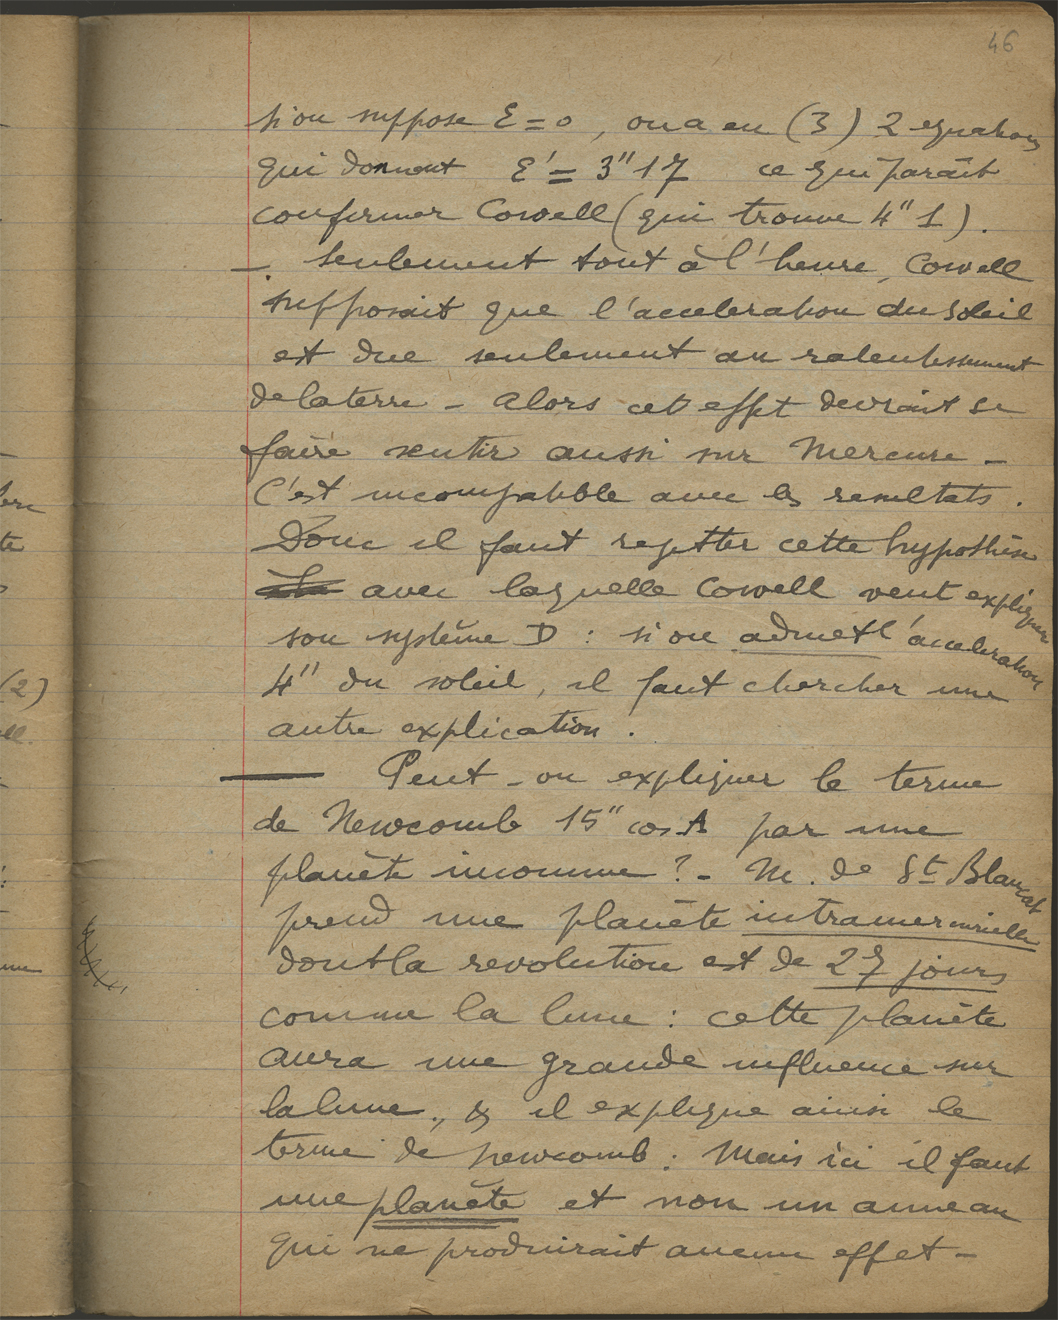 46
si on suppose Ɛ = 0, on a en (3) 2 equations
qui donnent Ɛ' = 3"17 ce qui parait
confirmer Cowell (qui trouve 4"1).
—. Seulement tout à l'heure, Cowell
supposait que l'acceleration du soleil
est due seulement au ralentissement
de la terre — Alors cet effet devrait se
faire sentir aussi sur Mercure —
C'est incompatible avec les resultats.
Donc il faut rejetter cette hypothèse
avec laquelle Cowell veut expliquer
son système D : si on admet l'acceleration
4" du soleil, il faut chercher une
autre explication.
— Peut-on expliquer le terme
de Newcomb 15" cos A par une
planète inconnue ? — M. de St Blancat
prend une planète intramercurielle
dont la revolution est de 27 jours
comme la lune : cette planète
aura une grande influence sur
la lune, & il explique ainsi le
terme de Newcomb : Mais ici il faut
une planète et non un anneau
qui ne produirait aucun effet —
(2)